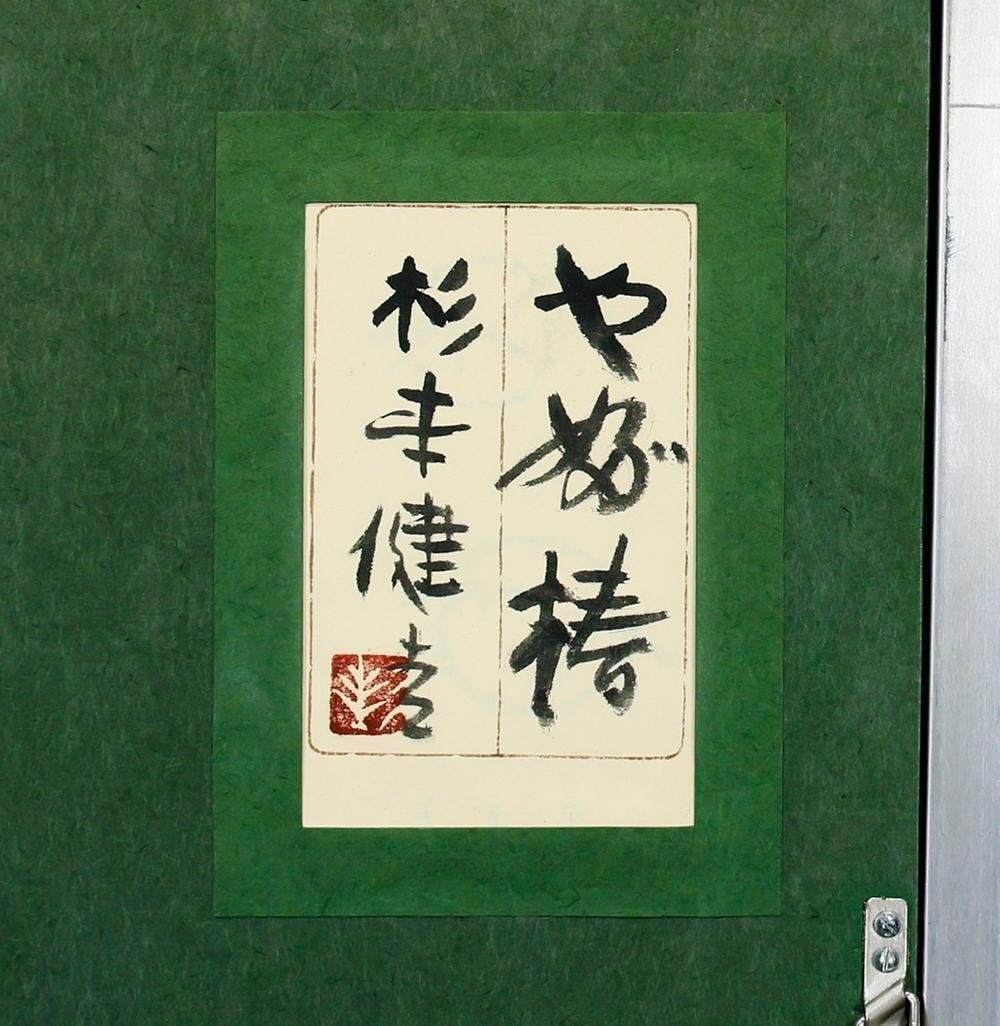 やぶ椿
杉本健吉